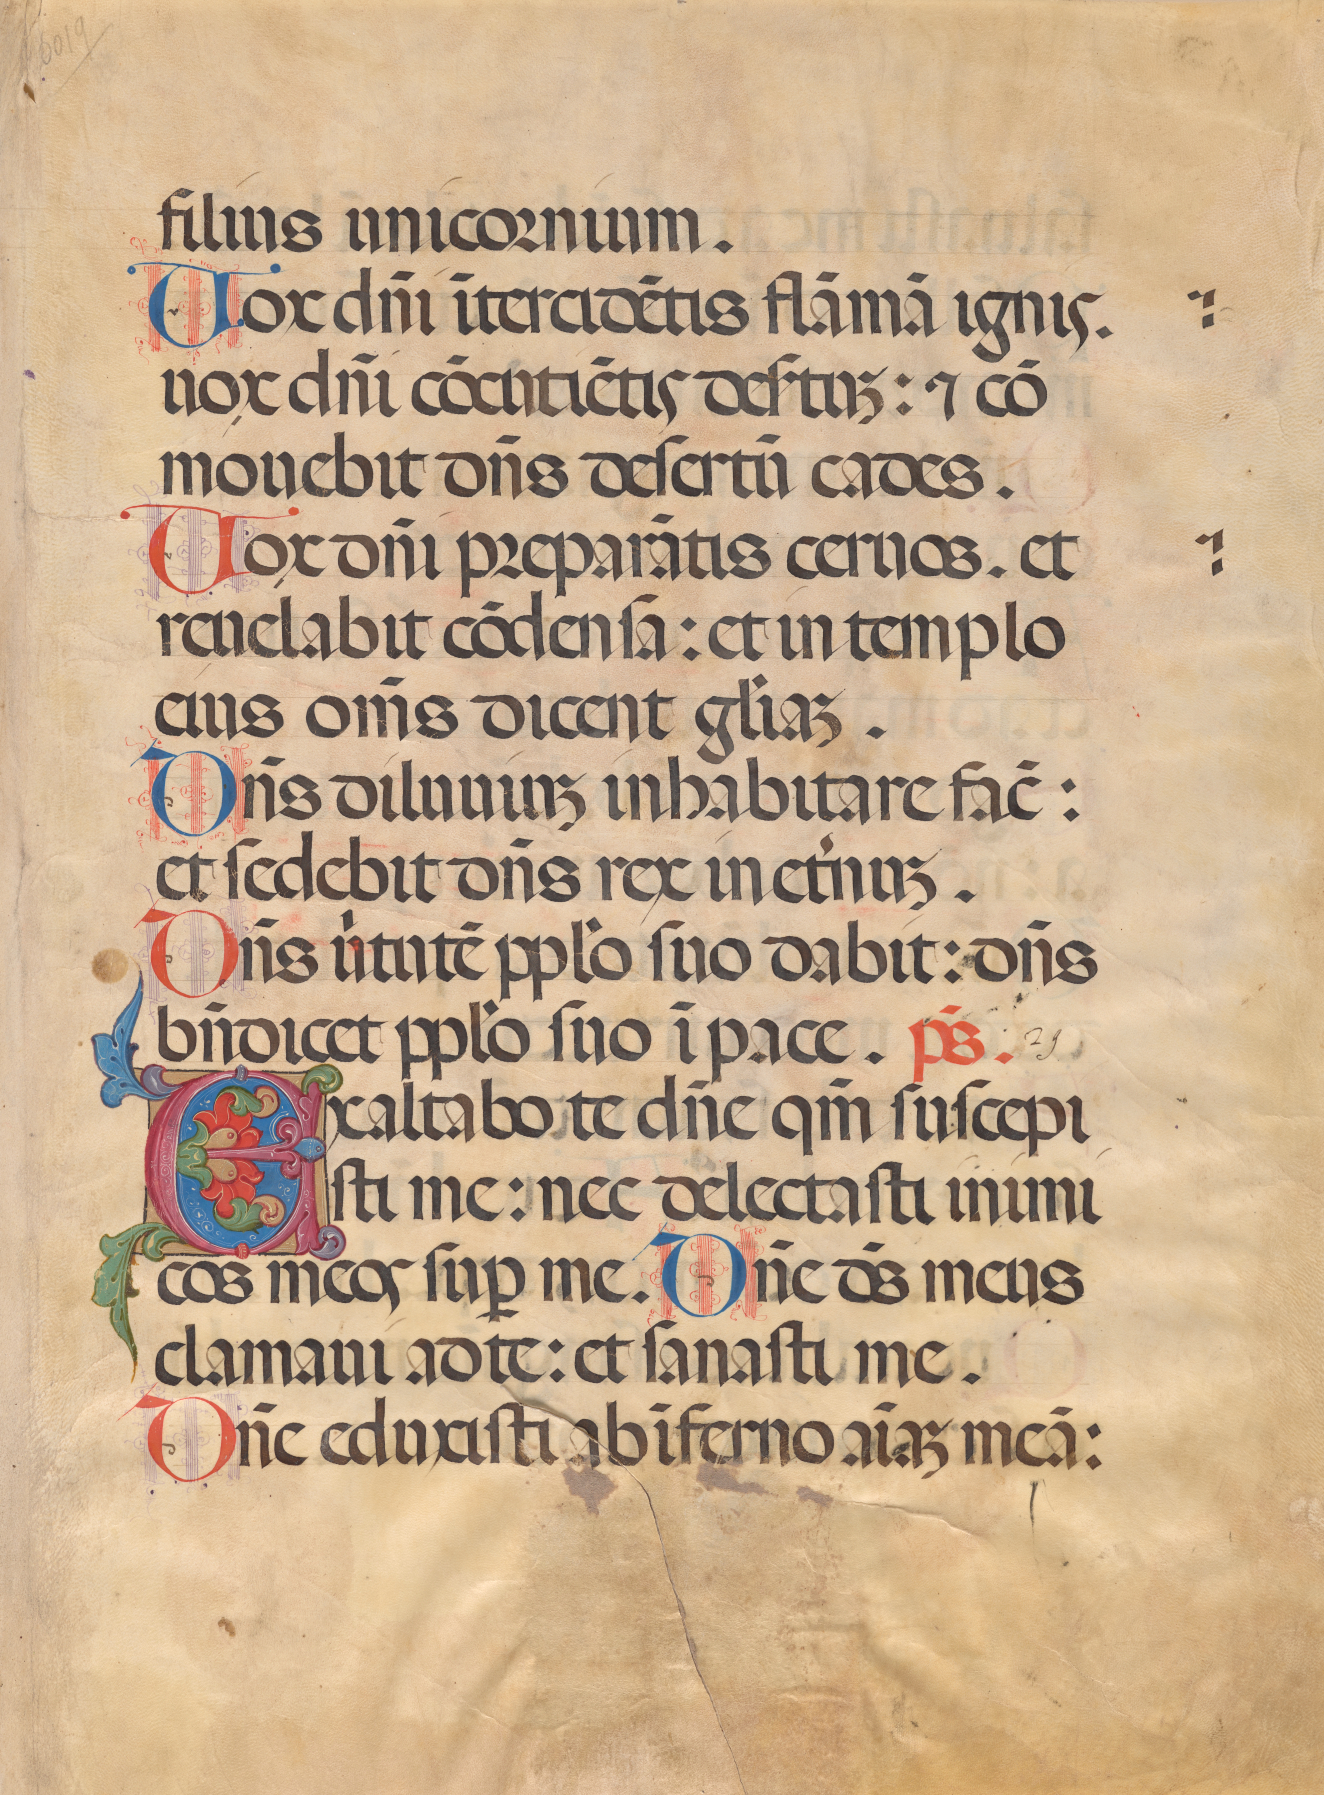 6019
filius unicornium.
Uox dn̄i ītercidētis flāmā ignis.
uox dn̄i cōcutiētis desꝛtuꝫ: ⁊ cō
mouebit dn̄s desertū cades.
Uox dn̄i preparātis ceruos. et
reuelabit cōdensa: et in templo
eius om̄s dicent gl'iaꝫ.
Dn̄s diluuiuꝫ inhabitare fac̄:
et sedebit dn̄s rex in et'nuꝫ.
Dn̄s u'tutē ppl'o suo dabit: dn̄s
bn̄dicet ppl'o suo ī pace. ps̄. 29
Exaltabo te dn̄e qm̄ suscepi
sti me: nec delectasti inimi
cos meos suꝑ me. Dn̄e ds̄ meus
clamaui ad te: et sanasti me.
Dn̄e eduxisti ab īferno aīaꝫ meā: